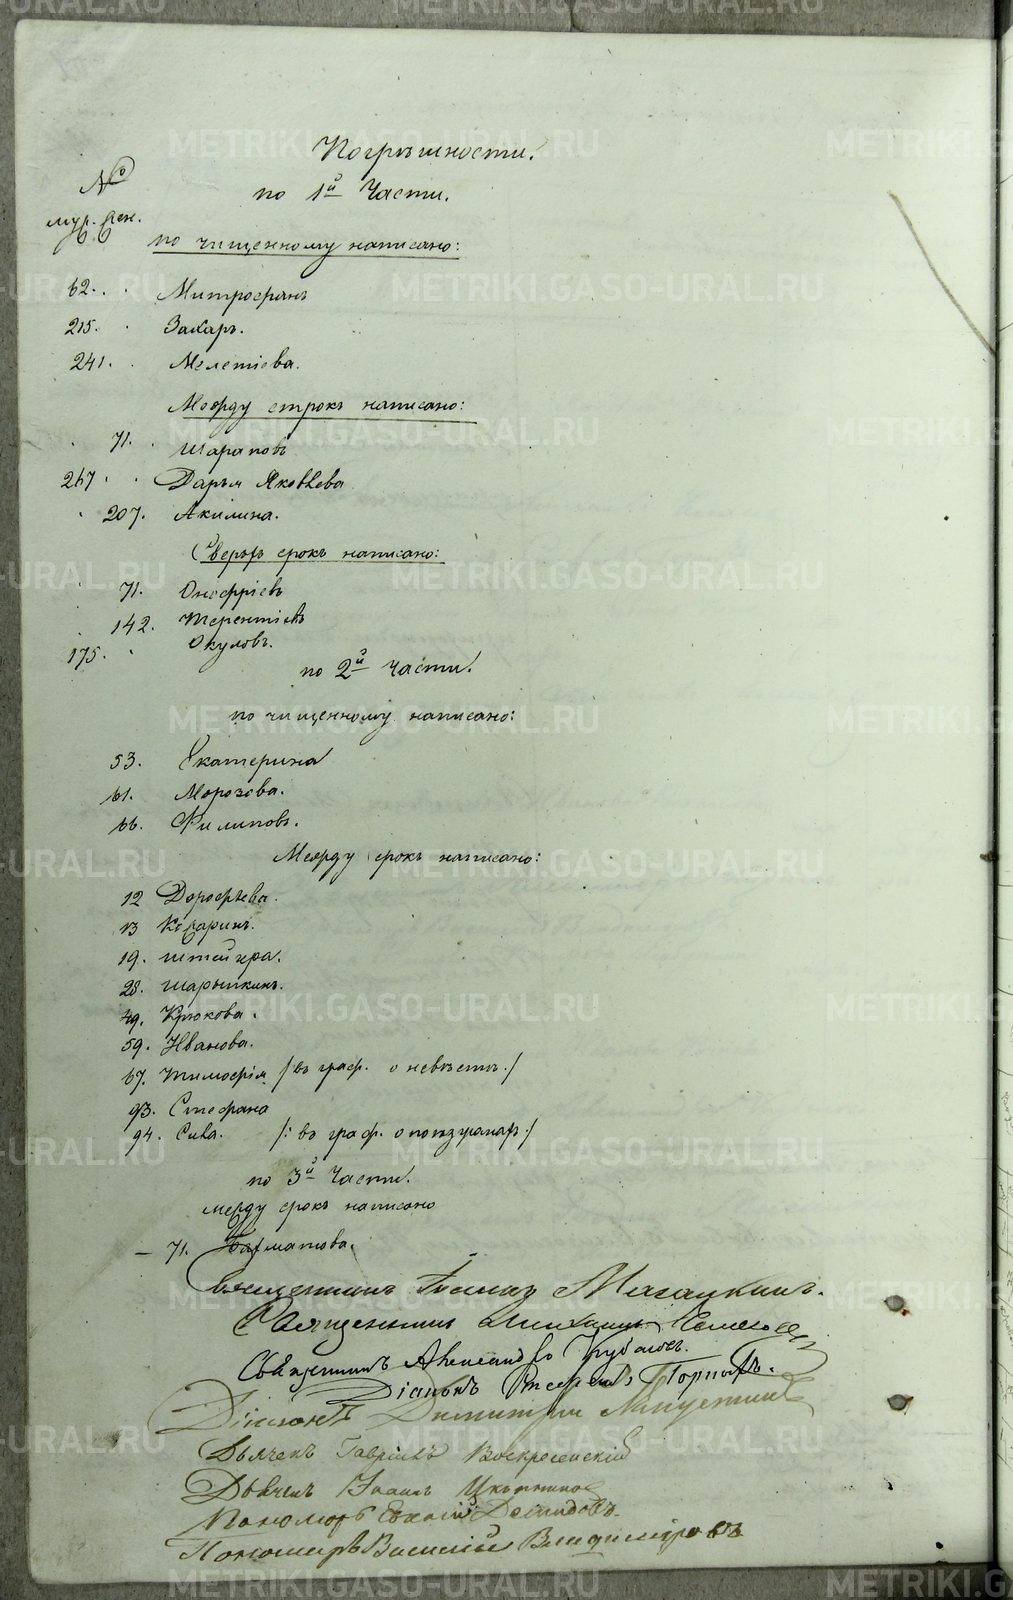 Погрѣшности.
№
по 1й Части.
муж. жен.
по чищенному написано:
62. Митрофанъ
215. Захаръ.
241. Мелетіева.
Между строкъ написано:
71. Шараповъ
267. Дарья Яковлева
207. Акилина.
Сверхъ срокъ написано:
71. Онофріевъ
142. Терентіевъ
175. Окуловъ.
по 2й Части.
по чищенному написано:
53. Екатерина
61. Морозова.
66. Филиповъ.
Между срокъ написано:
12 Дорофѣева.
13 Казаринъ.
19. Штейгра.
28. Шарышкинъ.
49. Крюкова.
59. Иванова.
67. Тимофія /въ граф. о невѣстѣ./
93. Стефана
94. Сива. /: въ граф. о
по 3й Части.
между срокъ написано
71. Бахматова.
Священникъ Іоаннъ
Священникъ Михаилъ
Священникъ Александръ
Діаконъ Георгій
Діаконъ Димитрій
Дьячекъ Гавріилъ Воскресенскій
Дьячекъ Іоаннъ
Пономарь Демидовъ.
Пономарь Василій Владиміровъ
METRIKI.GASO-URAL.RU